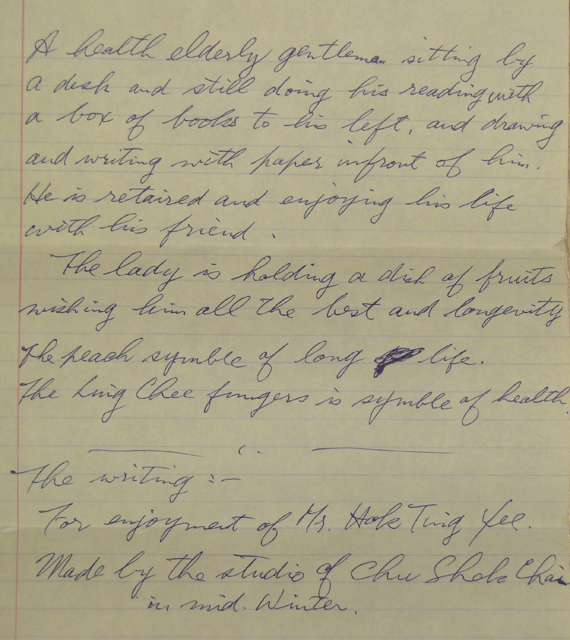 A health elderly gentleman sitting by
a desk and still doing his reading with
a box of books to his left, and drawing
and writing with paper infront of him.
He is retaired and enjoying his life
with his friend.
The lady is holding a dish of fruits
wishing him all the best and longevity
The peach symble of long life.
The Ling Chee fungers is symble of health.
The writing :-
For enjoyment of Mr. Hok Ting Yee.
Made by the studio of Chu Shek Chai
in mid. Winter.